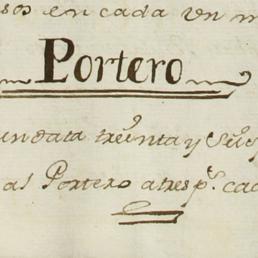 sos en cada un m
Portero
undata treinta y seis
al Portero a tres ps. cad